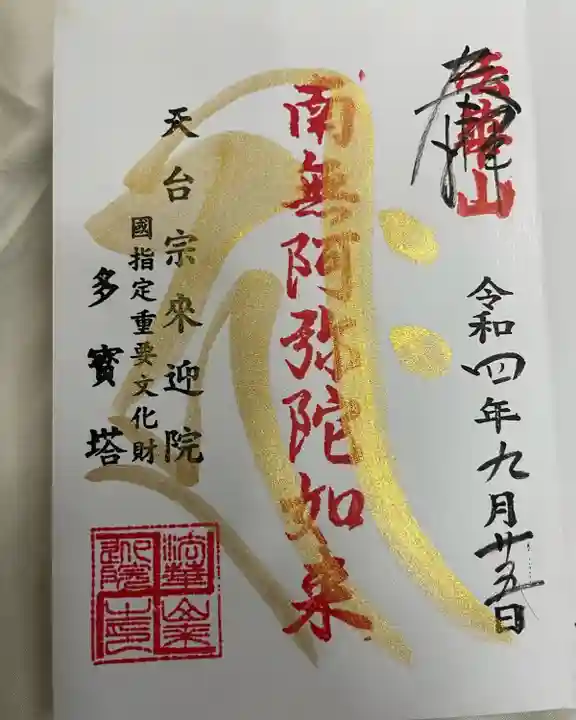 奉拝
法華山
令和四年九月廿五日
南無阿弥陀如来
天台宗來迎院
國指定重要文化財
多寳塔